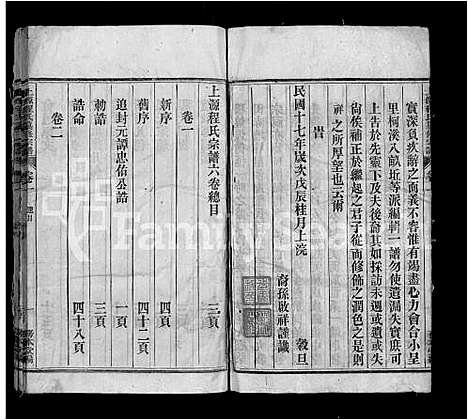 實深負疚辭之而義不容惟有竭盡心力會合小呈
里柯溪入畝坵等派編輯一譜勿使遺漏失實庶可
上告於先靈下及夫後裔其如採訪未週或有掛
漏尤冀於繼起之君子從而修飾之潤色之是則
祥之所厚望也云爾
旹
民國十七年歲次戊辰桂月上浣
穀旦
裔孫啟祥謹識
上源程氏宗譜六卷總目
卷一
新序 三頁
舊序 四十二頁
追封元譚忠佑公誥 一頁
勅誥 三頁
誥命 四十八頁
卷二
FamilySearch